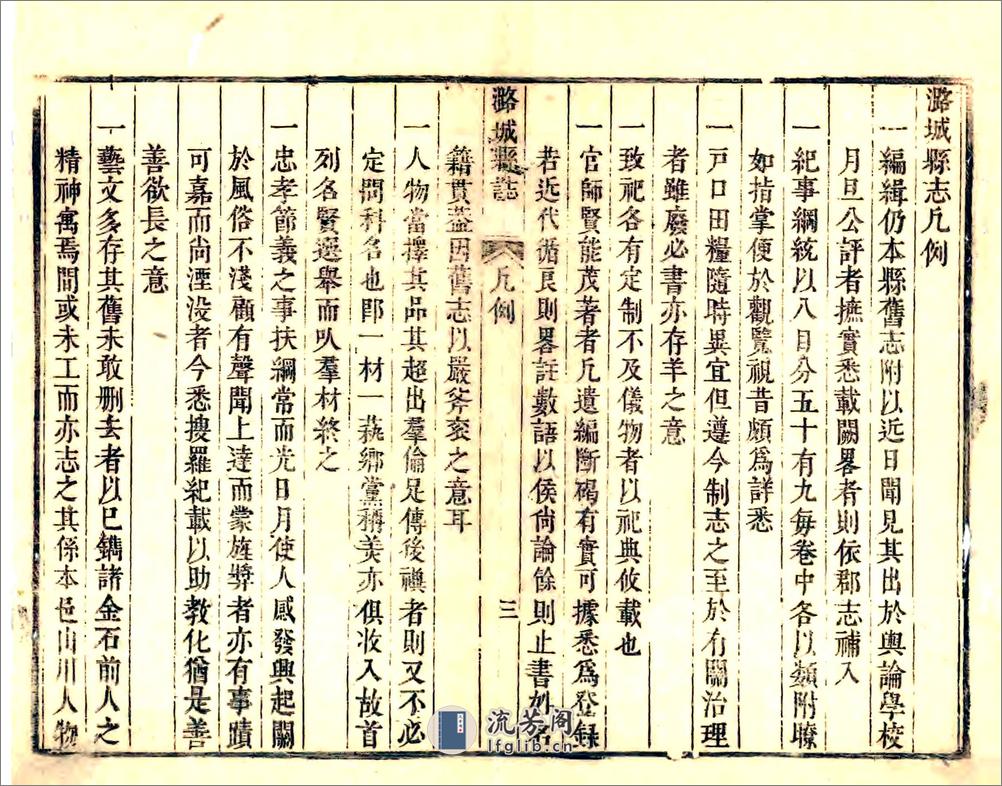 潞城縣志凡例
一編緝仍本縣舊志附以近日聞見其出於輿論學校
月旦公評者摭實悉載闕畧者則依郡志補入
一紀事綱統以八目分五十有九每卷中各以類附瞭
如指掌便於觀覽視昔頗爲詳悉
一戸口田糧隨時異宜但遵今制志之至於有關治理
者雖廢必書亦存羊之意
一致祀各有定制不及儀物者以祀典攸載也
一官師賢能茂著者凡遺編斷碣有實可據悉爲登録
若近代循良則畧註數語以俟尚論餘則止書姓名
籍貫蓋因舊志以嚴斧衮之意耳
潞城縣誌
凡例
三
一人物當擇其品其超出羣倫足傳後禩者則又不必
定問科名也即一材一藝鄉黨稱美亦俱收入故首
列名賢選舉而以羣材終之
一忠孝節義之事扶綱常而光日月使人感發興起關
於風俗不淺顧有聲聞上達而蒙旌獎者亦有事蹟
可嘉而尚湮没者今悉搜羅紀載以助教化猶是善
善欲長之意
一藝文多存其舊未敢刪去者以巳鐫諸金石前人之
精神寓焉間或未工而亦志之其係本邑山川人物
流芳阁
lfglib.cn